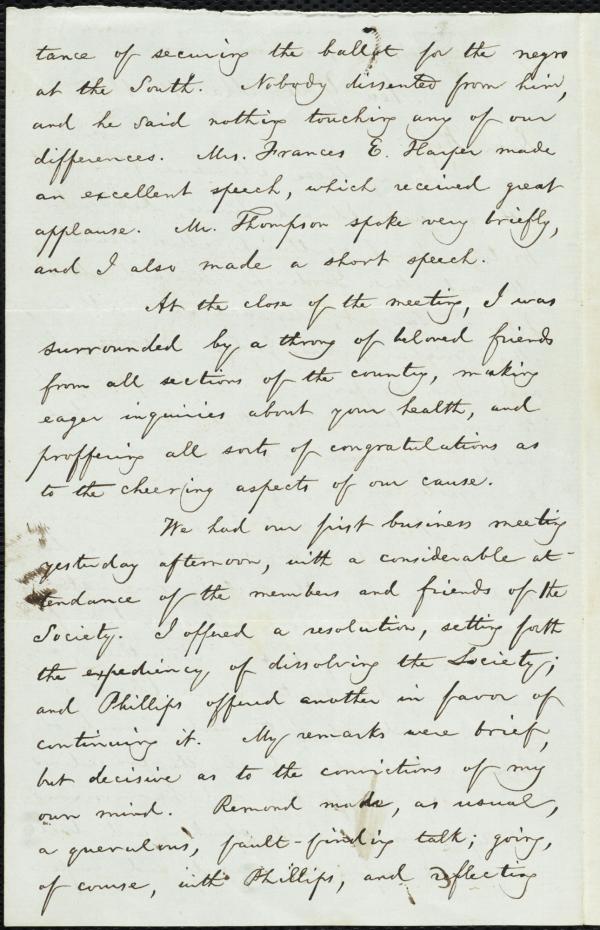 tance of securing the ballot for the negro
at the South. Nobody dissented from him,
and he said nothing touching any of our
differences. Mrs. Frances E. Harper made
an excellent speech, which received great
applause. Mr. Thompson spoke very briefly,
and I also made a short speech.
At the close of the meeting, I was
surrounded by a throng of beloved friends
from all sections of the country, making
eager inquiries about your health, and
proffering all sorts of congratulations as
to the cheering aspects of our cause.
We had our first business meeting
yesterday afternoon, with a considerable at-
tendance of the members and friends of the
Society. I offered a resolution, setting forth
the expediency of dissolving the Society;
and Phillips offered another in favor of
continuing it. My remarks were brief,
but decisive as to the convictions of my
own mind. Remond made, as usual,
a querulous, fault-finding talk; going,
of course, with Phillips, and reflecting